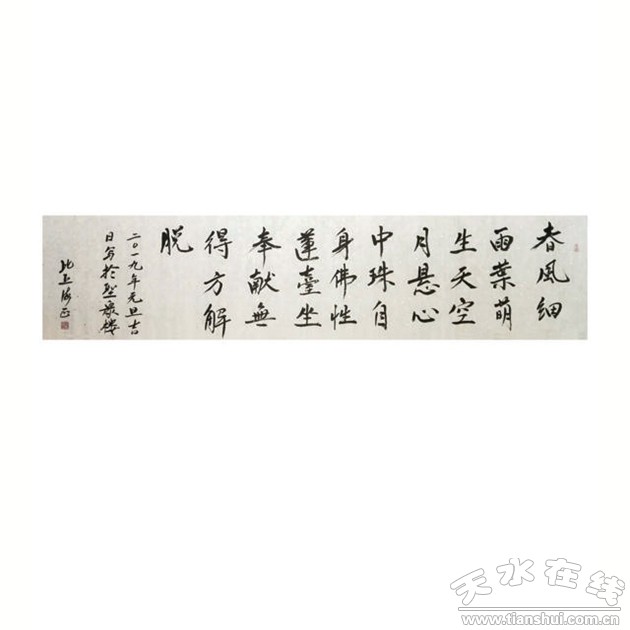 春风细
雨葉萌
生天空
月悬心
中珠自
身佛性
蓮臺坐
奉献無
得方解
脱
二〇一九年元旦吉
日写於
天水在线
www.tianshui.com.cn